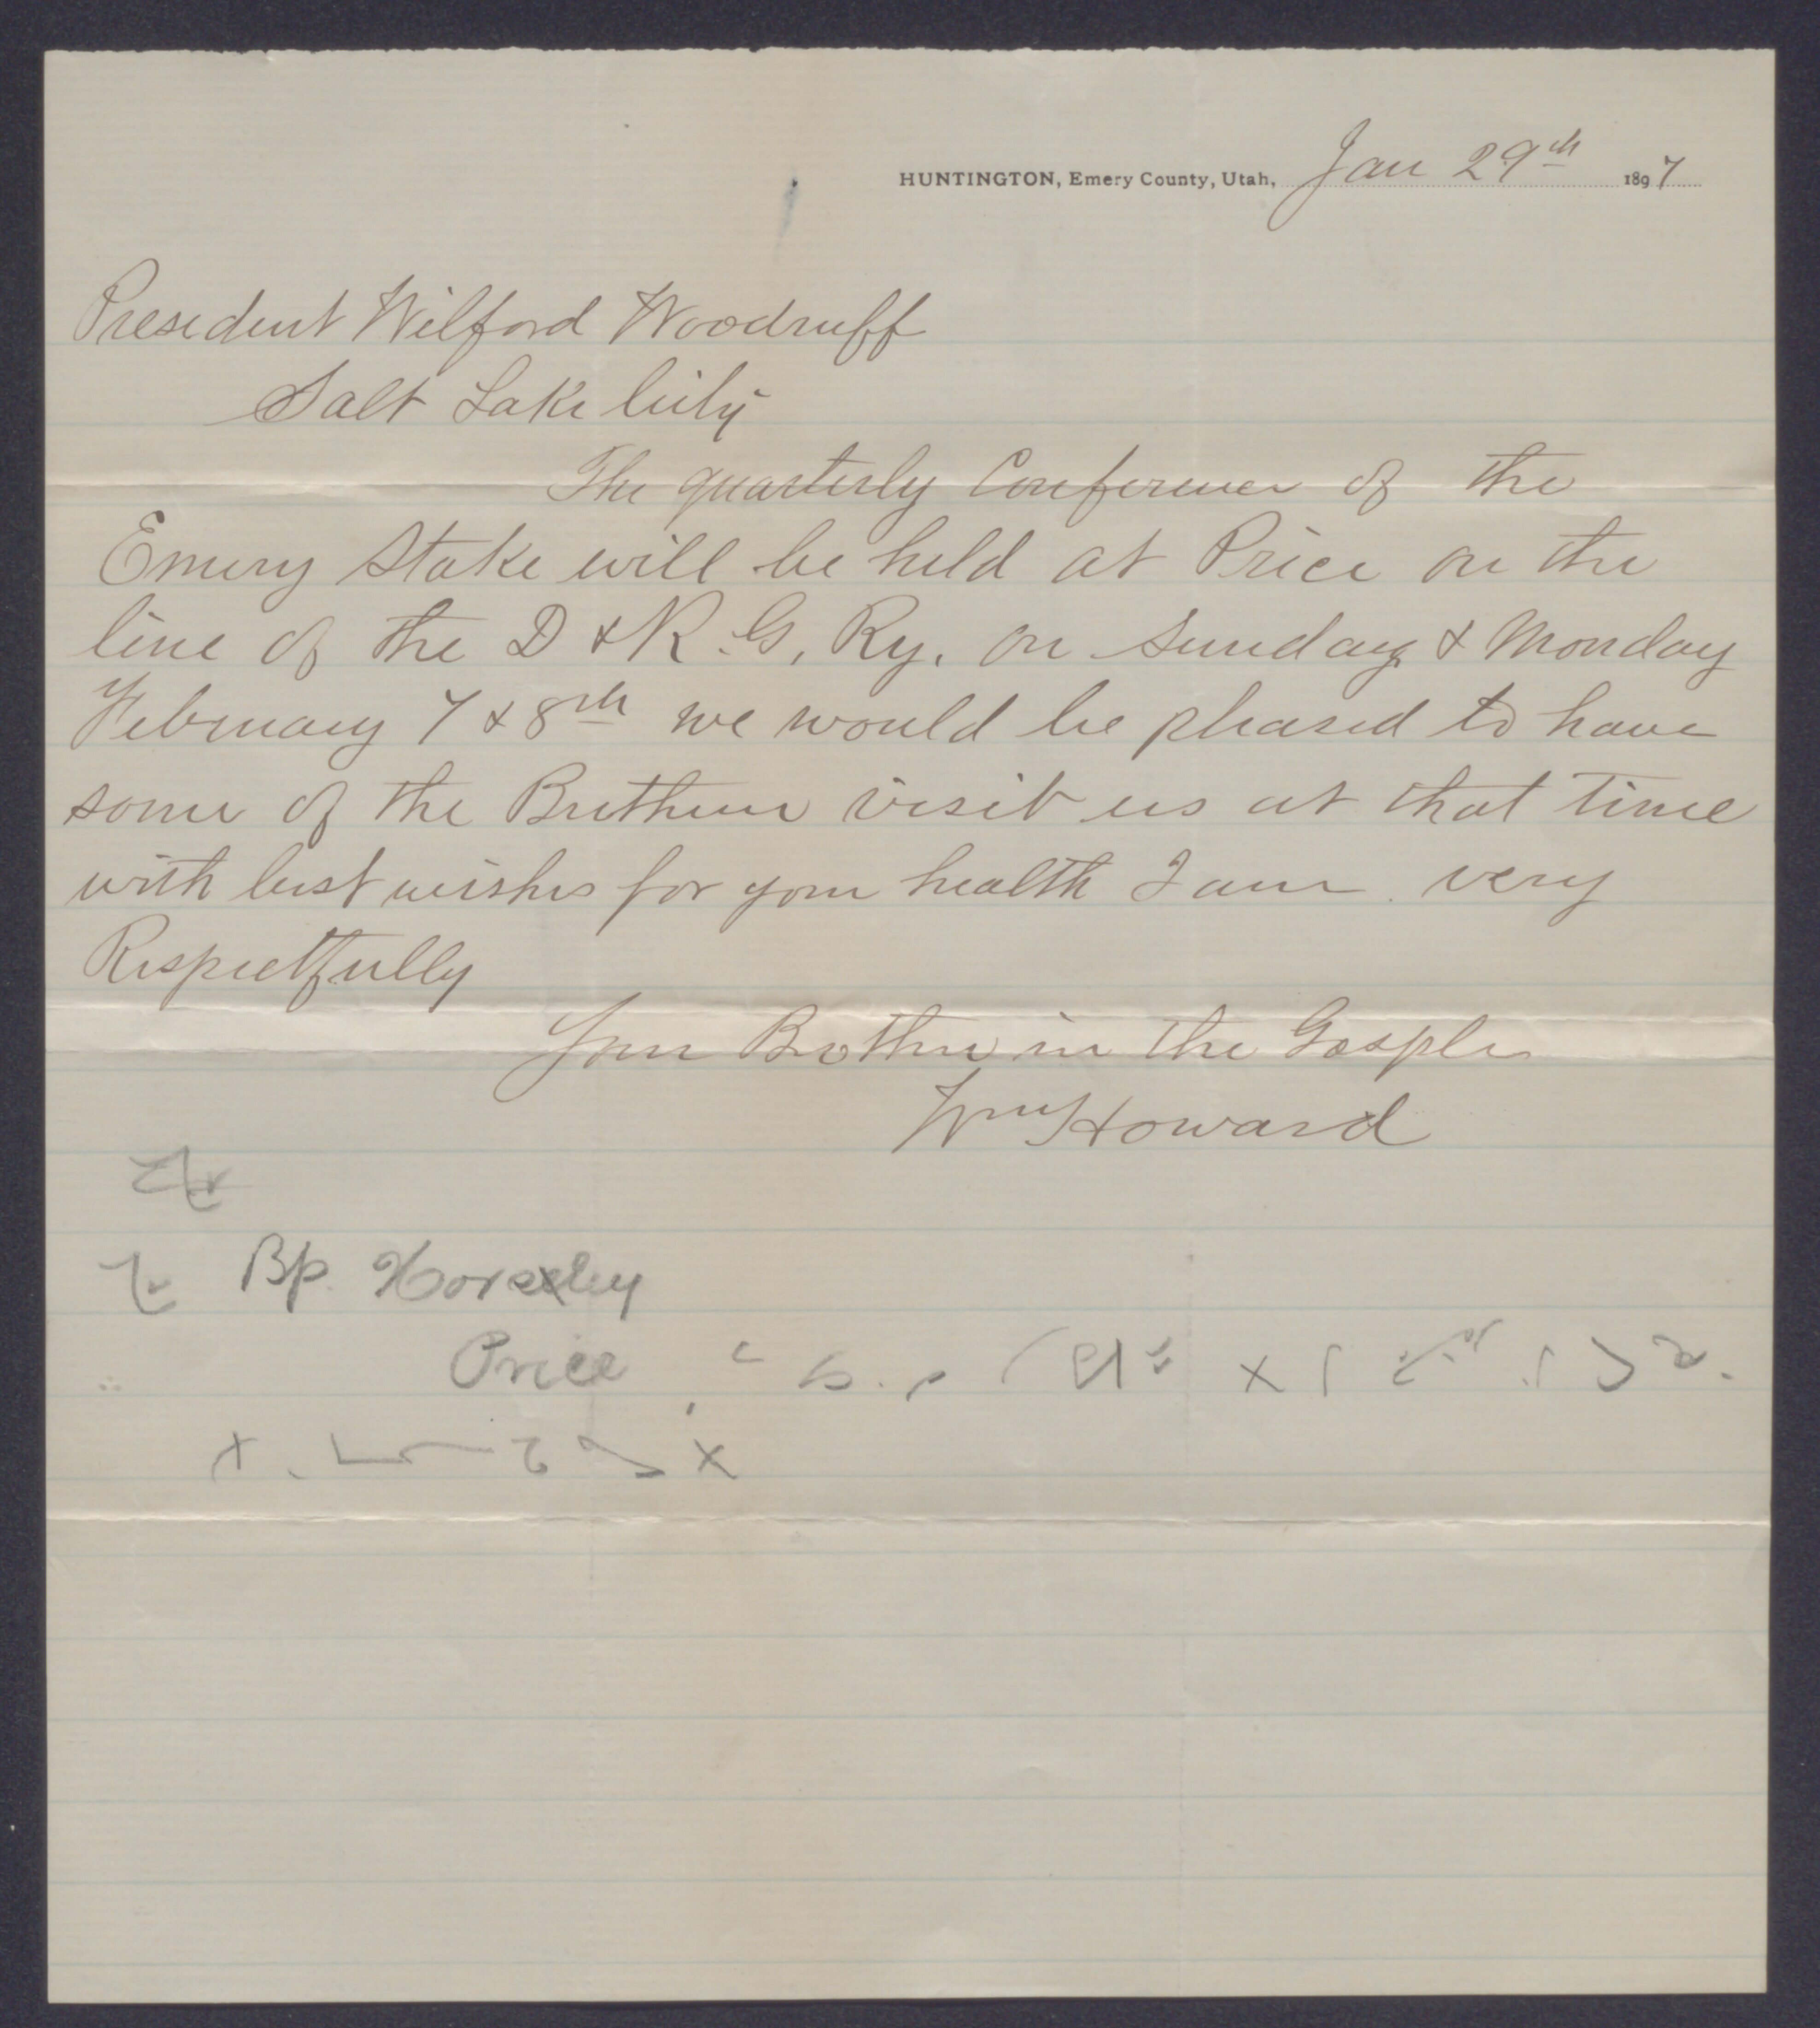 HUNTINGTON, Emery County, Utah, Jan 29th 1897
President Wilford Woodruff
Salt Lake City
The quarterly Conference of the
Emery Stake will be held at Price on the
line of the D & R. G, Ry. on Sunday & Monday
February 7 & 8th we would be pleased to have
some of the Brethren visit us at that time
with best wishes for your health I am very
Respectfully
Your Brother in the Gosple
Wm Howard
Bp. Horsley
Price